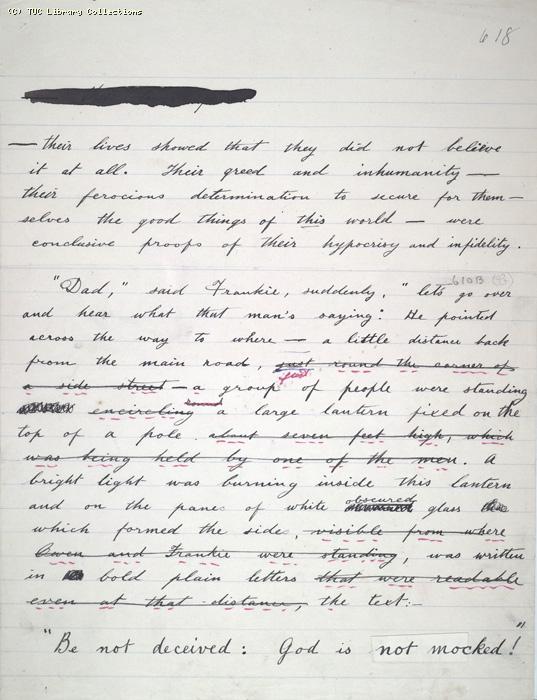 (C) TUC Library Collections
618
— their lives showed that they did not believe
it at all. Their greed and inhumanity —
their ferocious determination to secure for them—
selves the good things of this world — were
conclusive proofs of their hypocrisy and infidelity.
610B
"Dad," said Frankie, suddenly, "lets go over
and hear what that man's saying: He pointed
across the way to where — a little distance back
from the main road, just round the corner of
just
a side street — a group of people were standing
round
encircling a large lantern fixed on the
top of a pole about seven feet high, which
was being held by one of the men. A
bright light was burning inside this lantern
obscured
and on the panes of white glass
which formed the sides, visible from where
Owen and Frankie were standing, was written
in bold plain letters that were readable
even at that distance, the text:-
"Be not deceived: God is not mocked!"